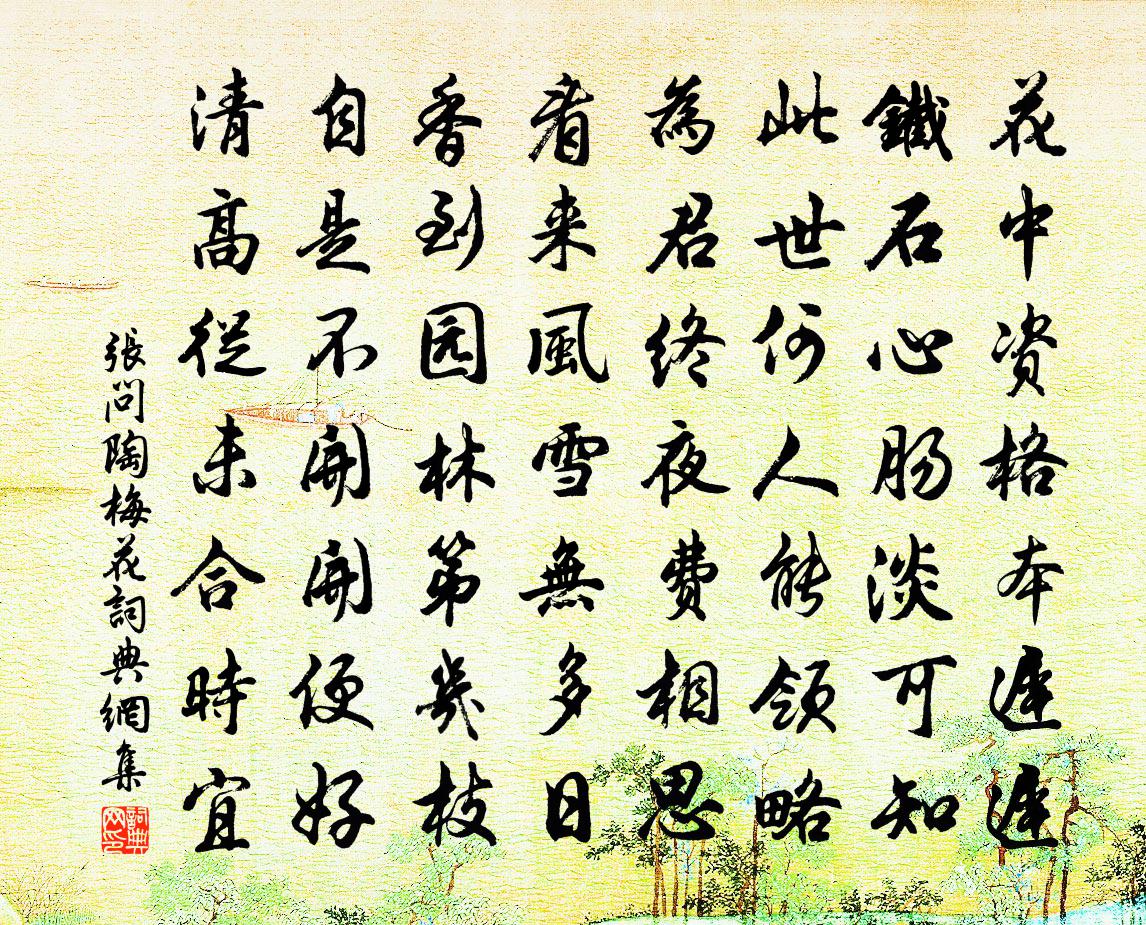 花中资格本遲遲
鐵石心肠淡可知
此世何人能領略
為君终夜费相思
看来風雪無多日
香到园林第幾枝
自是不開開便好
清高從未合時宜
張问陶梅花詞典網集
詞典